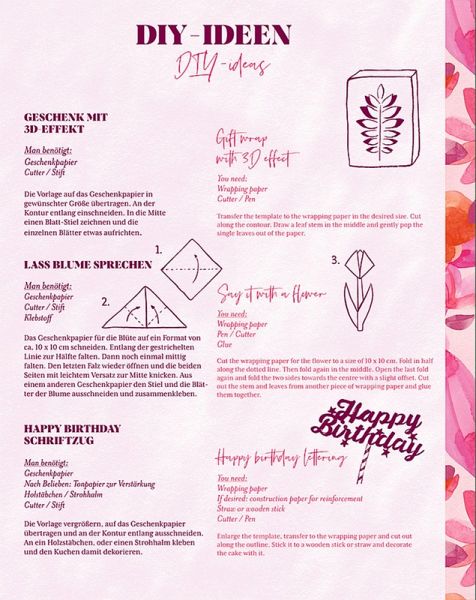 DIY-IDEEN
DIY-ideas
GESCHENK MIT
3D-EFFEKT
Man benötigt:
Geschenkpapier
Cutter / Stift
Die Vorlage auf das Geschenkpapier in
gewünschter Größe übertragen. An der
Kontur entlang einschneiden. In die Mitte
einen Blatt-Stiel zeichnen und die
einzelnen Blätter etwas aufrichten.
Gift wrap
with 3D effect
You need:
Wrapping paper
Cutter / Pen
Transfer the template to the wrapping paper in the desired size. Cut
along the contour. Draw a leaf stem in the middle and gently pop the
single leaves out of the paper.
LASS BLUME SPRECHEN
Man benötigt:
Geschenkpapier
Cutter / Stift
Klebstoff
1.
2.
3.
Das Geschenkpapier für die Blüte auf ein Format von
ca. 10 x 10 cm schneiden. Entlang der gestrichelten
Linie zur Hälfte falten. Dann noch einmal mittig
falten. Den letzten Falz wieder öffnen und die beiden
Seiten mit leichtem Versatz zur Mitte knicken. Aus
einem anderen Geschenkpapier den Stiel und die Blät-
ter der Blume ausschneiden und zusammenkleben.
Say it with a flower
You need:
Wrapping paper
Pen / Cutter
Glue
Cut the wrapping paper for the flower to a size of 10 x 10 cm. Fold in half
along the dotted line. Then fold again in the middle. Open the last fold
again and fold the two sides towards the centre with a slight offset. Cut
out the stem and leaves from another piece of wrapping paper and glue
them together.
HAPPY BIRTHDAY
SCHRIFTZUG
Man benötigt:
Geschenkpapier
Nach Belieben: Tonpapier zur Verstärkung
Holstäbchen / Strohhalm
Cutter / Stift
Die Vorlage vergrößern, auf das Geschenkpapier
übertragen und an der Kontur entlang ausschneiden.
An ein Holzstäbchen, oder einen Strohhalm kleben
und den Kuchen damit dekorieren.
Happy
Birthday
Happy birthday lettering
You need:
Wrapping paper
If desired: construction paper for reinforcement
Straw or wooden stick
Cutter / Pen
Enlarge the template, transfer to the wrapping paper and cut out
along the outline. Stick it to a wooden stick or straw and decorate
the cake with it.